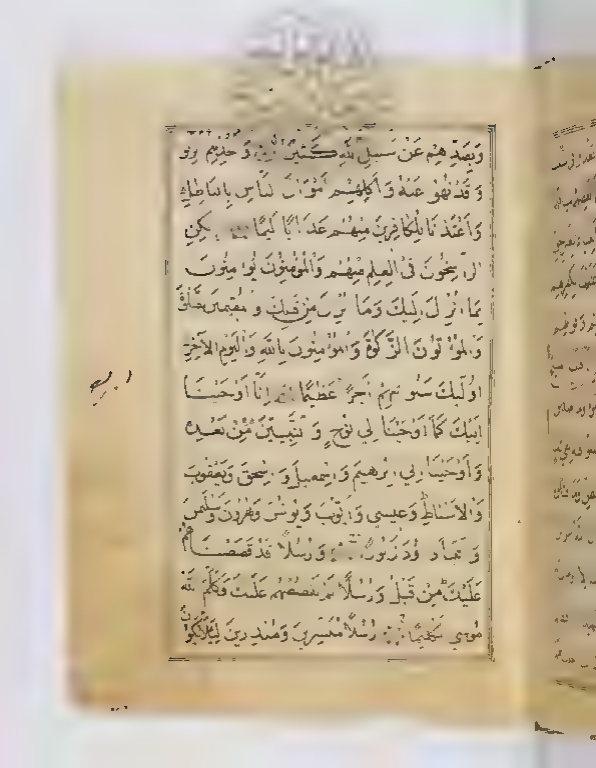 وَبِصَدِّهِمْ عَنْ سَبِيلِ اللهِ كَثِيرًا وَأَخْذِهِمُ الرِّبٰو
وَقَدْ نُهُوا عَنْهُ وَأَكْلِهِمْ أَمْوَالَ النَّاسِ بِالْبَاطِلِ
وَأَعْتَدْنَا لِلْكَافِرِينَ مِنْهُمْ عَذَابًا أَلِيمًا لٰكِنِ
الرَّاسِخُونَ فِي الْعِلْمِ مِنْهُمْ وَالْمُؤْمِنُونَ يُؤْمِنُونَ
بِمَا أُنْزِلَ إِلَيْكَ وَمَا أُنْزِلَ مِنْ قَبْلِكَ وَالْمُقِيمِينَ الصَّلٰوةَ
وَالْمُؤْتُونَ الزَّكٰوةَ وَالْمُؤْمِنُونَ بِاللهِ وَالْيَوْمِ الْآخِرِ
أُولٰئِكَ سَنُؤْتِيهِمْ أَجْرًا عَظِيمًا إِنَّا أَوْحَيْنَا
إِلَيْكَ كَمَا أَوْحَيْنَا إِلٰى نُوحٍ وَالنَّبِيِّينَ مِنْ بَعْدِهِ
وَأَوْحَيْنَا إِلٰى إِبْرٰهِيمَ وَإِسْمٰعِيلَ وَإِسْحٰقَ وَيَعْقُوبَ
وَالْأَسْبَاطِ وَعِيسٰى وَأَيُّوبَ وَيُونُسَ وَهٰرُونَ وَسُلَيْمٰنَ
وَآتَيْنَا دَاوُدَ زَبُورًا وَرُسُلًا قَدْ قَصَصْنَاهُمْ
عَلَيْكَ مِنْ قَبْلُ وَرُسُلًا لَمْ نَقْصُصْهُمْ عَلَيْكَ وَكَلَّمَ اللهُ
مُوسٰى تَكْلِيمًا رُسُلًا مُبَشِّرِينَ وَمُنْذِرِينَ لِئَلَّا يَكُونَ